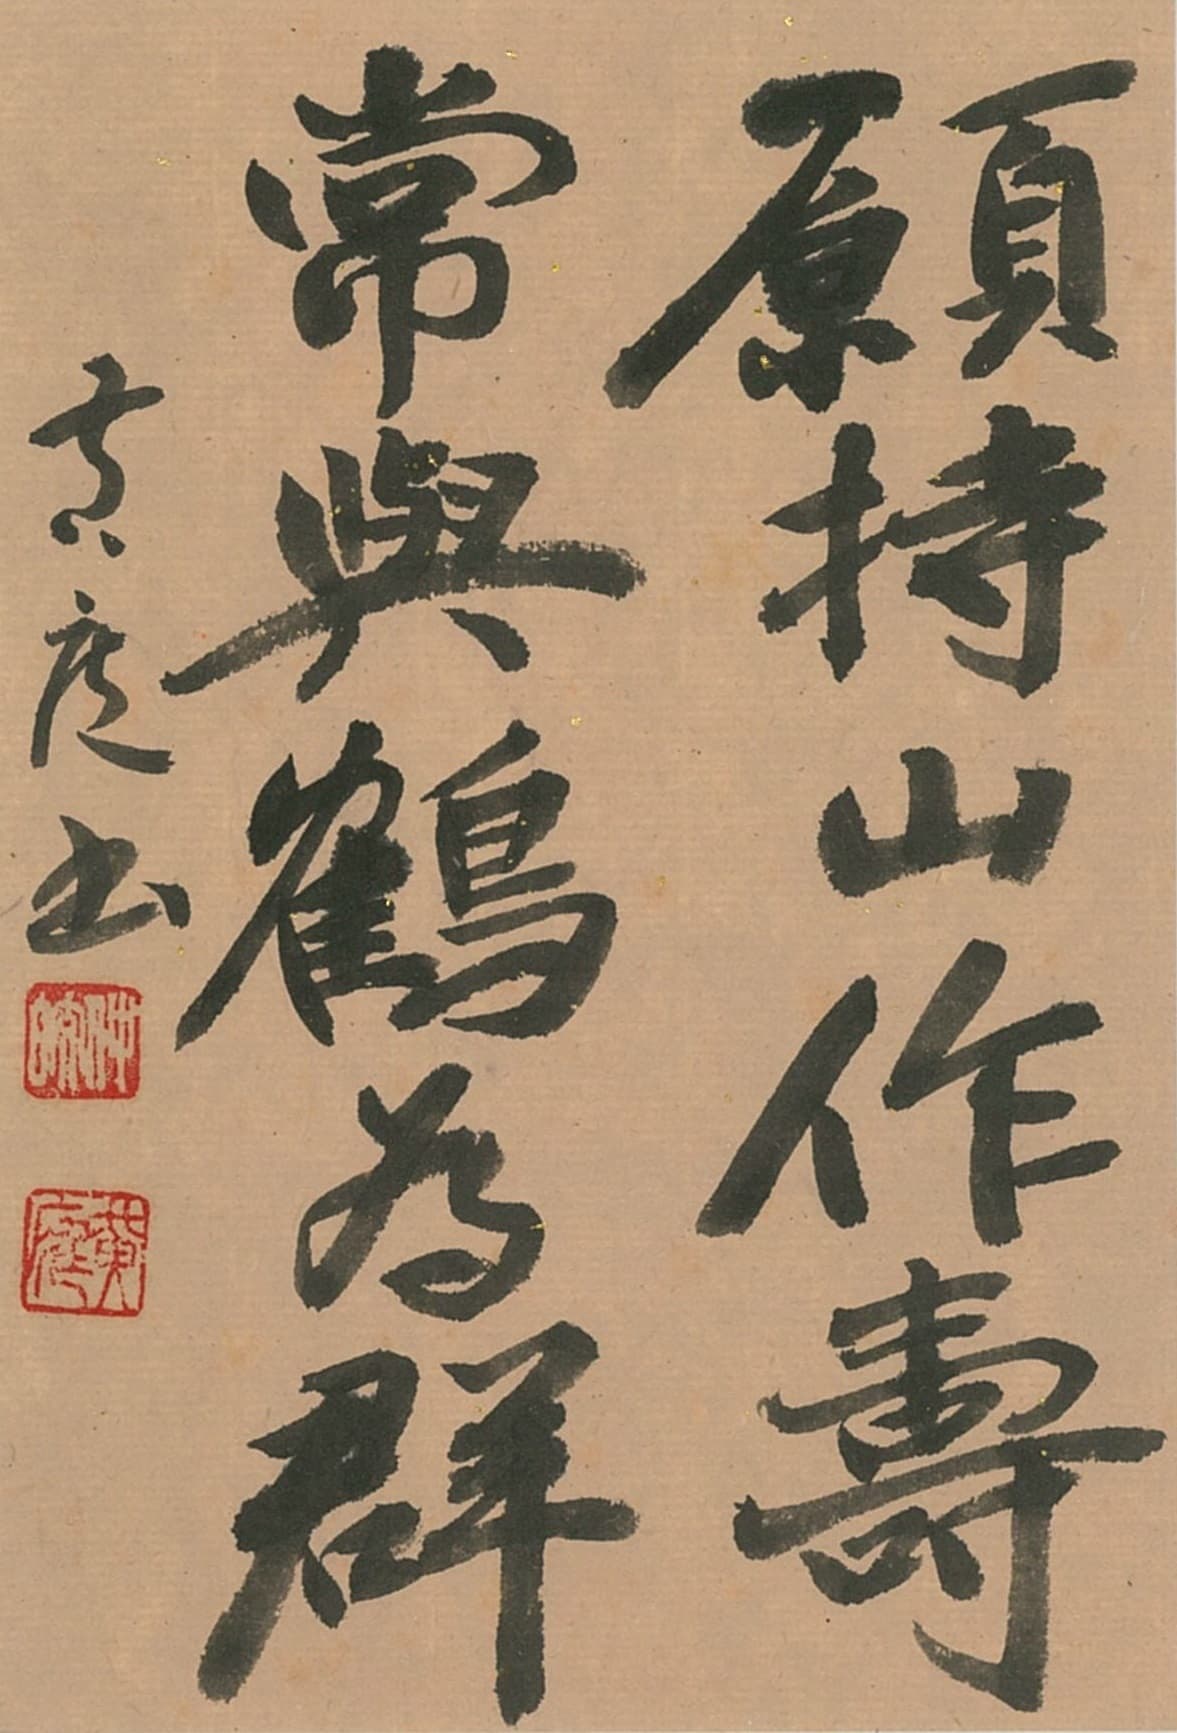 願持山作壽
常與鶴為群
黃庭書